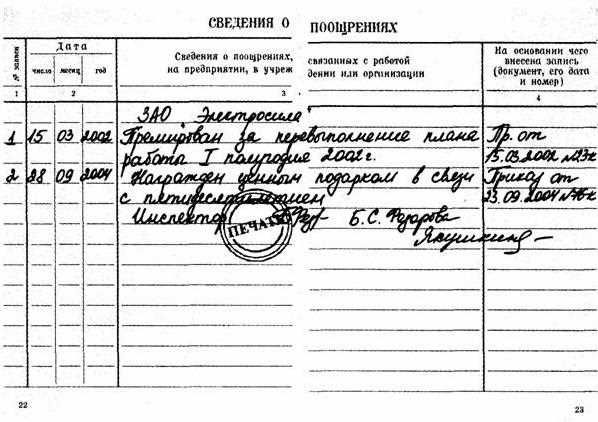 СВЕДЕНИЯ О ПООЩРЕНИЯХ
№ записи
Дата
число месяц год
Сведения о поощрениях, связанных с работой
на предприятии, в учреждении или организации
На основании чего
внесена запись
(документ, его дата
и номер)
1 2 3 4
ЗАО "Электросила"
1 15 03 2002 Премирован за перевыполнение плана Пр. от
работы I полугодия 2002 г. 15.03.2002
2 28 09 2004 Награжден ценным подарком в связи Приказ от
с пятидесятилетием 23.09.2004
Инспектор Б.С.
ПЕЧАТЬ
22 23